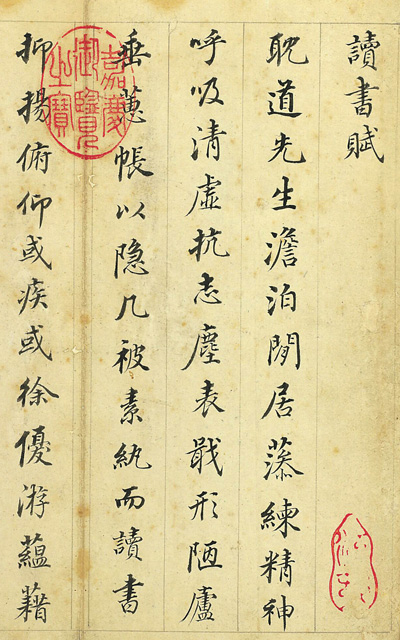 讀書賦
耽道先生澹泊閒居藻練精神
呼吸清虛抗志塵表戢形陋廬
垂蕙帳以隱几被素紈而讀書
抑揚俯仰或疾或徐優游蘊藉
嘉慶御覽之寶